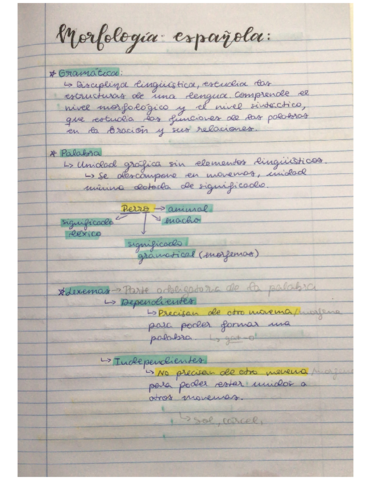 Morfología española:
* Gramática:
↳ Disciplina lingüística, estudia las
estructuras de una lengua. Comprende el
nivel morfológico y el nivel sintáctico,
que estudia las funciones de las palabras
en la oración y sus relaciones.
* Palabra
↳ Unidad gráfica sin elementos lingüísticos.
↳ Se descompone en monemas, unidad
mínima dotada de significado.
→ animal
significado macho
léxico
significado
gramatical (morfemas)
* Lexemas → Parte obligatoria de la palabra
↳ Dependientes
↳ Precisan de otro monema/
para poder formar una
palabra
↳ Independientes
↳ No precisan de otro monema/
para poder estar unidos a
otros monemas.
↳ Sol,